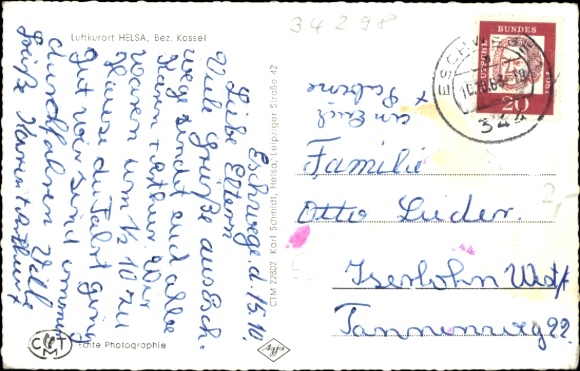 34298
Luftkurort HELSA, Bez. Kassel
Eschwege d. 15.10.
Liebe Eltern
Viele Grüße aus Esch-
wege sendet euch alle
Karin + Arthur. Wir
waren um ½ 10 zu
Hause die Fahrt ging
gut wir sind immer
durchfahren Viele
Grüße Karin + Arthur
CTM 22802 Karl Schmidt, Helsa, Leipziger Straße 42
Agfa
CTM
Echte Photographie
DEUTSCHE BUNDESPOST
20
ESCHWEGE
344
Familie
Otto Lüder.
Iserlohn Westf
Tannenweg 22.
2,-